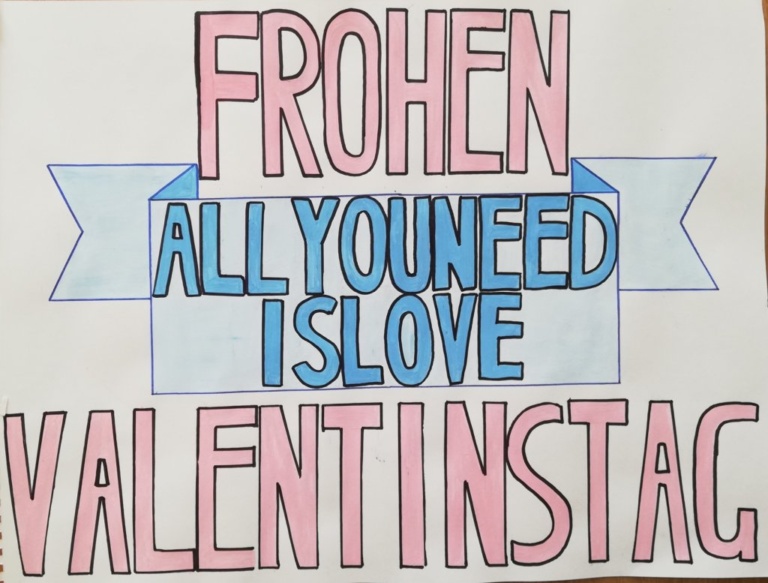 FROHEN
ALL YOU NEED
IS LOVE
VALENTINSTAG